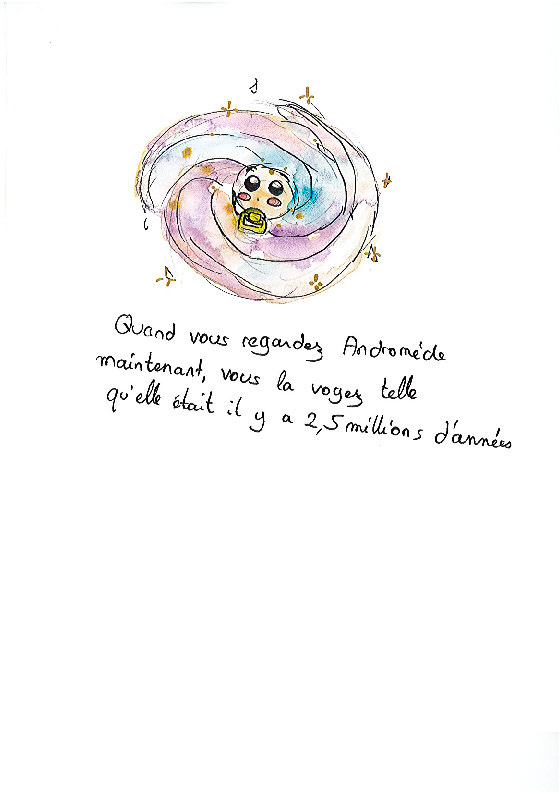 Quand vous regardez Andromède
maintenant, vous la voyez telle
qu'elle était il y a 2,5 millions d'années